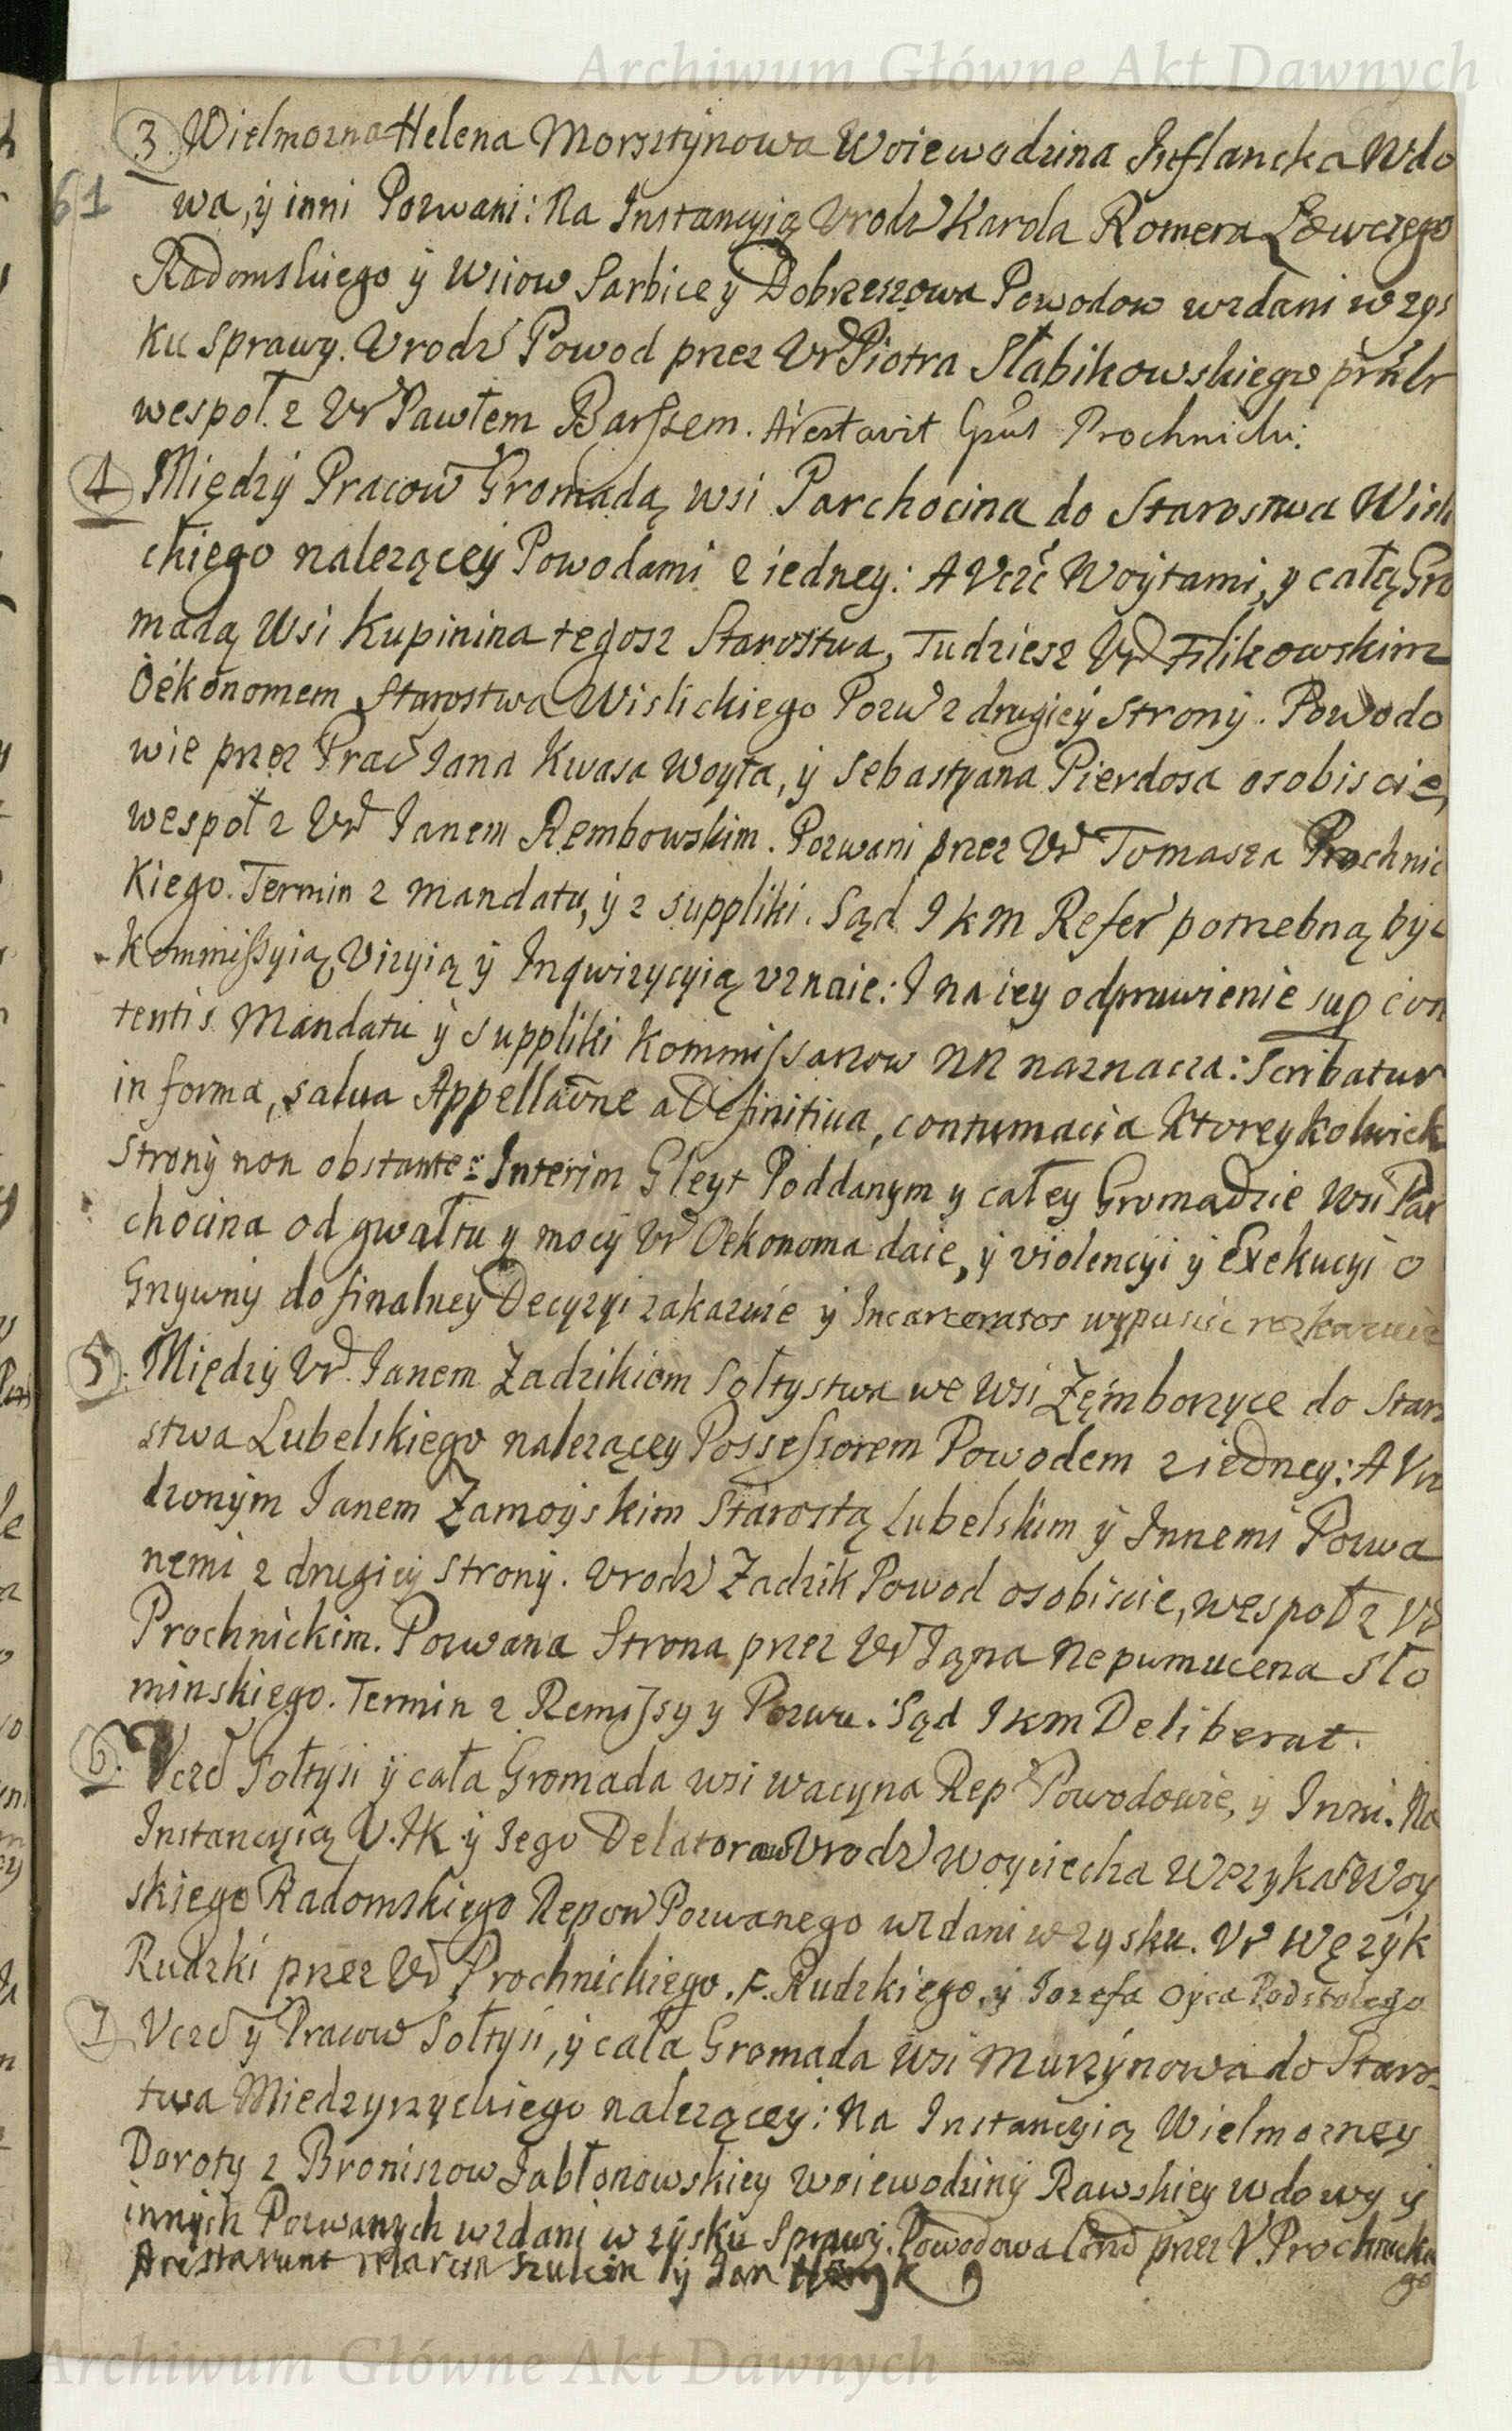 Archiwum Główne Akt Dawnych
3. Wielmozna Helena Morsztynowa Woiewodzina Inflancka Wdo
61
wa, ÿ inni Pozwani: Na Instancyią Vrodz Karola Romera Łowczego
Radomskiego ÿ Wsiow Sarbice y Dobrzeszowa Powodow wzdani w zys
ku Sprawy. Vrodz Powod przez Vr Piotra Słabikowskiego
wespoł z Vr Pawłem Barssem. Arestavit Prochnicki
4 Międzÿ Pracow Gromadą wsi Parchocina do Starostwa Wisli
ckiego nalezącey Powodami z iedney: A Vczć Woÿtami, y całą Gro
madą Wsi Kupinina tegosz Starostwa, Tudziesz Vr Filikowskim
Oekonomem Starostwa Wislickiego Pozw z drugieÿ Stronÿ. Powodo
wie przez Prac Iana Kwasa Woyta, ÿ Sebastyana Pierdosa osobiscie,
wespoł z Vr Ianem Rembowskim. Pozwani przez Vr Tomasza Prochnic
kiego. Termin z Mandatu, ÿ z suppliki. Sąd I K M Refer potrzebną byc
Kommissyią, Vizyią ÿ Inqwizycyią vznaie: I na iey odprawienie sup con
tentis Mandatu ÿ suppliki Kommissarzow NN naznacza: Scribatur
in forma, salva Appellaõne a Definitiva, contumacia Ktoreykolwiek
Stronÿ non obstante: Interim Gleyt Poddanym y całey Gromadzie Wsi Par
chocina od gwałtu y mocÿ Vr Oekonoma daie, ÿ violencÿi ÿ Exekucÿi o
Grzywnÿ do finalney Decyzyi zakazuie ÿ Incarceratos wypuscic rozkazuie
5. Międzÿ Vr. Ianem Zadzikiem Sołtystwa we Wsi Zęmborzyce do Staro
stwa Lubelskiego nalezącey Possessorem Powodem z iedney: A Vro
dzonÿm Ianem Zamoÿskim Starostą Lubelskim ÿ Innemi Pozwa
nemi z drugieÿ stronÿ. Vrodz Zadzik Powod osobiscie, wespoł z Vr
Prochnickim. Pozwana Strona przez Vr Iana Nepumucena Sło
minskiego. Termin z Remissy y Pozwu. Sąd I K M Deliberat.
6. Vczć Sołtysi ÿ cała Gromada wsi Wacyna Rep Powodowie, ÿ Inni. Na
Instancyią V. IK ÿ Iego Delatorow Vrodz Woyciecha Węzyka Woy
skiego Radomskiego Repow Pozwanego wzdani w zysku. Vr Węzÿk
Rudzki przez Vr Prochnickiego. F. Rudzkiego, ÿ Iozefa Oyca Podstolego
7 Vczć ÿ Pracow Sołtysi, ÿ cała Gromada Wsi Murzÿnowa do Staros
twa Miedzyrzyckiego nalezącey: Na Instancyią Wielmozney
Doroty z Broniszow Iabłonowskiey Woiewodzinÿ Rawskiey wdowy ÿ
innÿch Pozwanych wzdani w zÿsku Sprawÿ. Powodowa przez V. Prochnicki
go
Arestarunt Marcin Szulcik ÿ Ian
Archiwum Główne Akt Dawnych